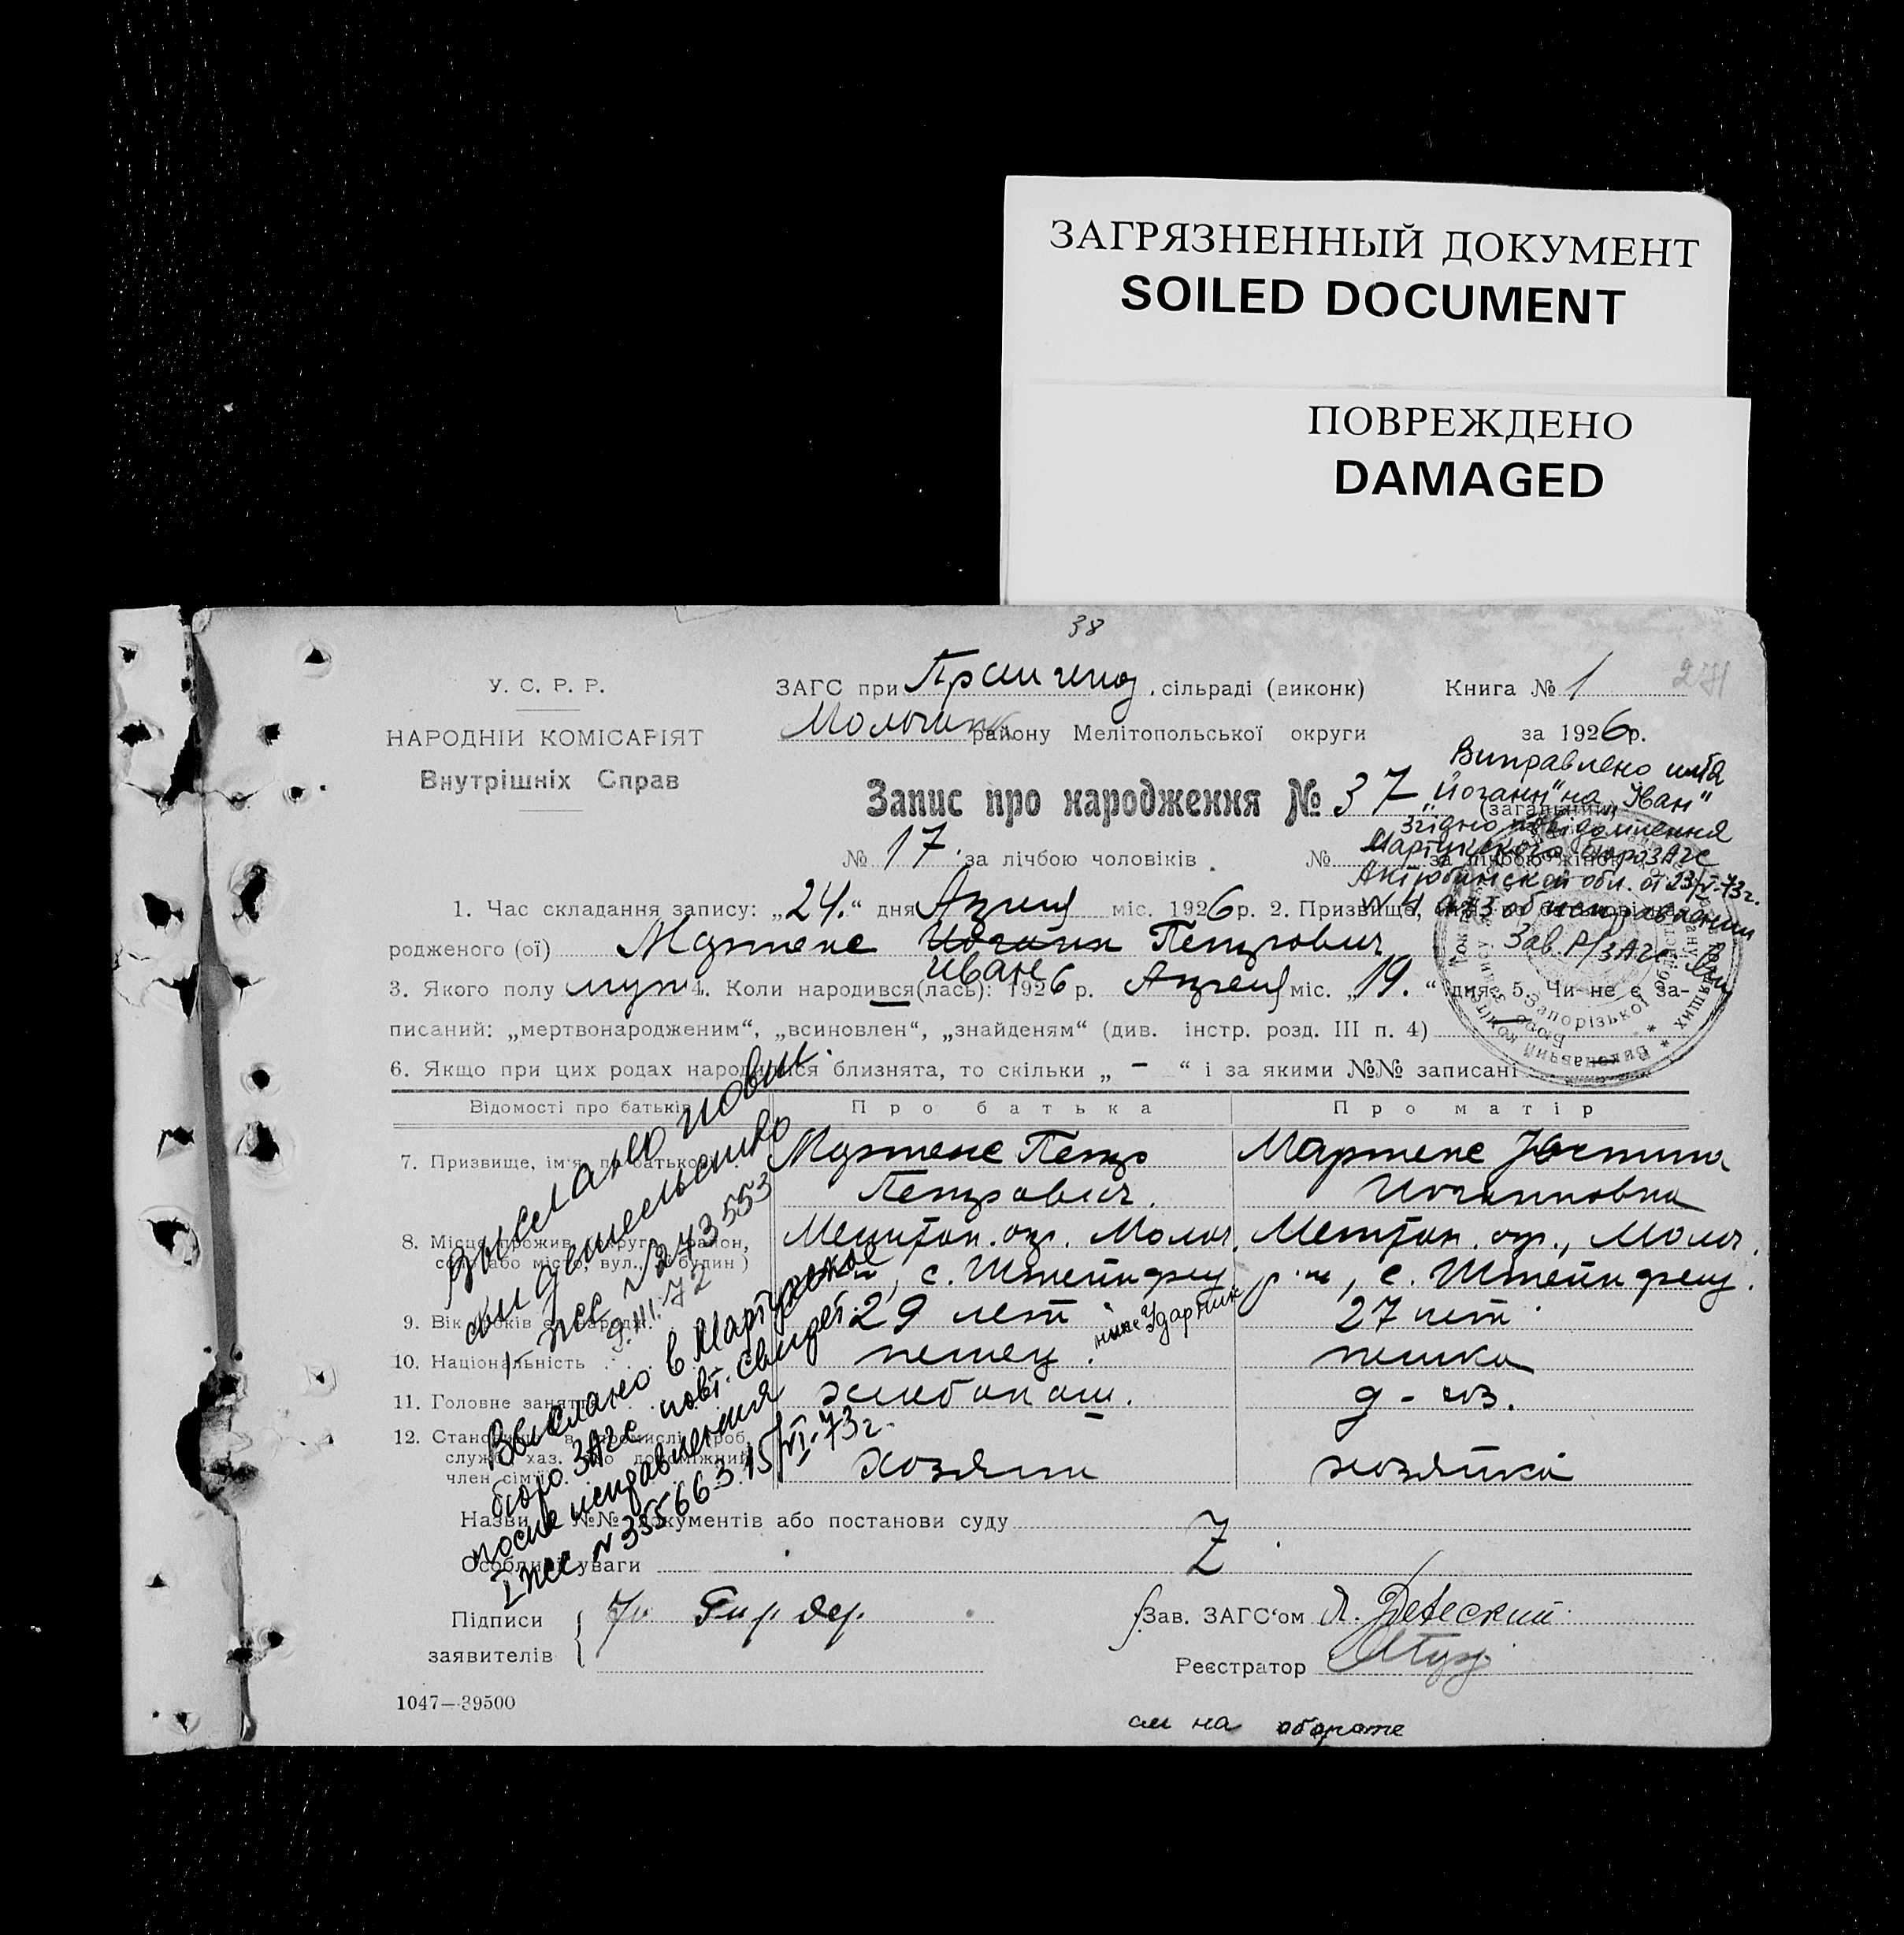 ЗАГРЯЗНЕННЫЙ ДОКУМЕНТ
SOILED DOCUMENT
ПОВРЕЖДЕНО
DAMAGED
38
271
У. С. Р. Р.
НАРОДНІЙ КОМІСАРІЯТ
Внутрішніх Справ
ЗАГС при сільраді (виконк)
району Мелітопольської округи
Книга № 1
за 1926 р.
Запис про народження № 37
(загальний)
№ 17. за лічбою чоловіків № за лічбою жінок
Виправлено имʼя
„Йоганн" на „Іван"
згідно повідомлення
Мартукского бюро ЗАГС
Актюбинской обл. от 23/V-73г.
Зав. Р/ЗАГС
1. Час складання запису: „24." дня Апреля міс. 1926 р. 2. Призвище,
родженого (ої) Мартенс Иоганн Петрович
Иван
3. Якого полу муж 4. Коли народився(лась): 1926 р. Апреля міс. „19." дня 5. Чи не є за-
писаний: „мертвонародженим", „всиновлен", „знайденям" (див. інстр. розд. III п. 4)
6. Якщо при цих родах народилися близнята, то скільки „ – " і за якими №№ записані
Відомості про батьків Про батька Про матір
7. Призвище, ім'я, по батькові Мартенс Петр Мартенс Юстина
Петрович. Иоганновна
8. Місце прожив. (округа, район, Мелитоп. окр. Молоч. Мелитоп. окр., Молоч.
село або місто, вул., № будин) , с. Штейнфельд. р-на, с. Штейнфельд.
ныне Ударник
9. Вік 29 лет 27 лет
10. Національність немец. немка
11. Головне заняття хлебопаш. д-хоз.
12. Становище в промислі (роб.
служб. хаз. або допоміжний
член сім'ї) хозяин хозяйка
Выслано повтн.
свидетельство
I ЖС № 243553
9.III.72
Выслано в Мартукское
бюро ЗАГС повт. свидет.
после исправления
I ЖС № 355663. 15/VI-73г.
Назви і №№ документів або постанови суду
Особливі уваги Z
Підписи
заявителів
Зав. ЗАГС'ом
Реєстратор
1047—39500
см на обороте